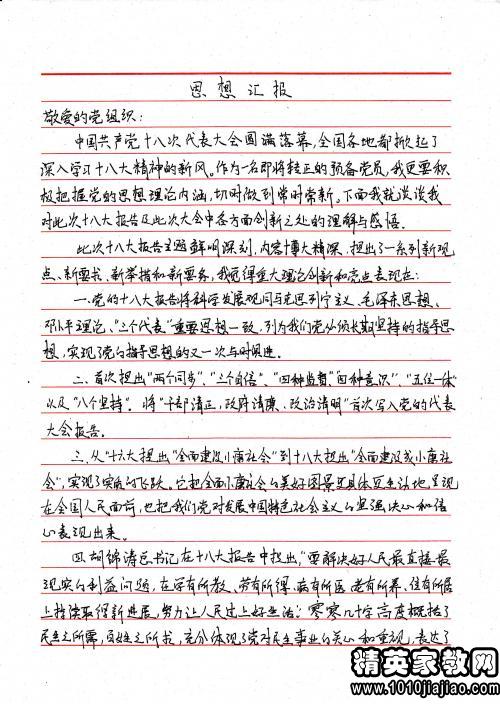 思想汇报
敬爱的党组织：
中国共产党十八次代表大会圆满落幕，全国各地都掀起了
深入学习十八大精神的新风。作为一名即将转正的预备党员，我更要积
极把握党的思想理论内涵，切时做到常时常新。下面我就谈谈我
对此次十八大报告及此次大会中各方面创新之处的理解与感悟。
此次十八大报告主题鲜明深刻，内容博大精深，提出了一系列新观
点、新要求、新举措和新要务，我觉得重大理论创新和亮点表现在：
一.党的十八大报告将科学发展观同马克思列宁主义、毛泽东思想、
邓小平理论、"三个代表"重要思想一致，列为我们党必须长期坚持的指导思
想，实现了党的指导思想的又一次与时俱进。
二.首次提出"两个同步"、"三个自信"、"四种监督"、"四种意识"、"五位一体"
以及"八个坚持"。将"干部清正，政府清廉，政治清明"首次写入党的代表
大会报告。
三.从"十六大提出"全面建设小康社会"到十八大提出"全面建成小康社
会"，实现了实质的飞跃，它把全面小康社会的美好图景更具体更生动地呈现
在全国人民面前，也把我们党对发展中国特色社会主义的坚强决心和信
心表现出来。
四.胡锦涛总书记在十八大报告中提出，"要解决好人民最直接最
现实的利益问题，在学有所教、劳有所得、病有所医、老有所养、住有所居
上持续取得新进展，努力让人民过上好生活；"寥寥几十字高度概括了
民生之所需，百姓之所求，充分体现了党对民生事业的关心和重视，表达了
精英家教网
www.1010jiajiao.com